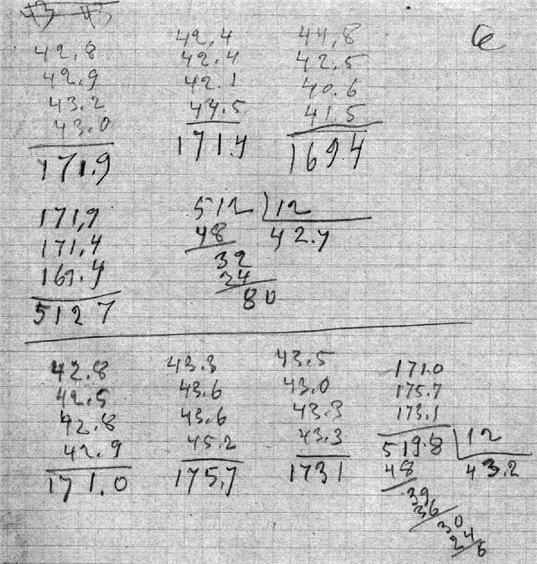 42.8 42,4 44,8
42.9 42.4 42.5
43.2 42.1 40.6
43.0 44.5 41.5
171.9 171.4 169.4
171,9 512 12
171,4 48 42.7
169.4 32
5127 24
80
42.8 43.3 43.5 171.0
42.5 43.6 43.0 175.7
42.8 43.6 43.3 173.1
42.9 45.2 43.3 519.8 12
171.0 175,7 1731 48 43.2
39
36
30
24
6